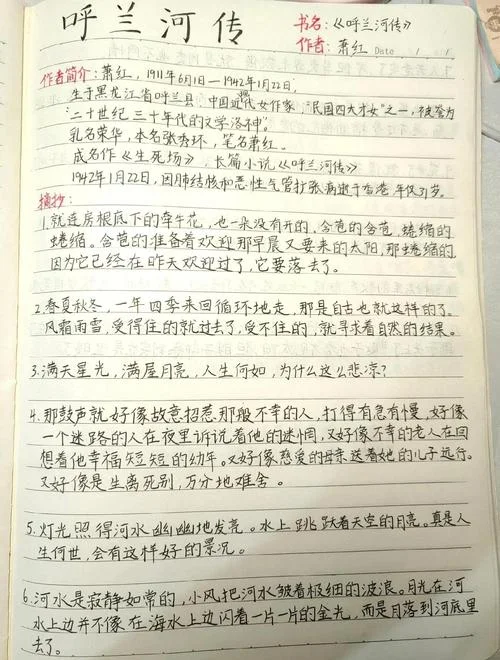 呼兰河传
书名：《呼兰河传》
作者：萧红 Date / /
作者简介：萧红，1911年6月1日—1942年1月22日，
生于黑龙江省呼兰县，中国近现代女作家，"民国四大才女"之一，被誉为
"二十世纪三十年代的文学洛神"。
乳名荣华，本名张秀环，笔名萧红。
成名作《生死场》，长篇小说《呼兰河传》
1942年1月22日，因肺结核和恶性气管扩张病逝于香港，年仅31岁。
摘抄：
1.就连房根底下的牵牛花，也一朵没有开的，含苞的含苞，蜷缩的
蜷缩。含苞的准备着欢迎那早晨又要来的太阳，那蜷缩的，
因为它已经在昨天欢迎过了，它要落去了。
2.春夏秋冬，一年四季来回循环地走，那是自古也就这样的了。
风霜雨雪，受得住的就过去了，受不住的，就寻求着自然的结果。
3.满天星光，满屋月亮，人生何如，为什么这么悲凉？
4.那鼓声就好像故意招惹那般不幸的人，打得有急有慢，好像
一个迷路的人在夜里诉说着他的迷惘，又好像不幸的老人在回
想着他幸福短短的幼年。又好像慈爱的母亲送着她的儿子远行。
又好像是生离死别，万分地难舍。
5.灯光照得河水幽幽地发亮。水上跳跃着天空的月亮。真是人
生何世，会有这样好的景况。
6.河水是寂静如常的，小风把河水皱着极细的波浪。月光在河
水上边并不像在海水上边闪着一片一片的金光，而是月落到河底里
去了。